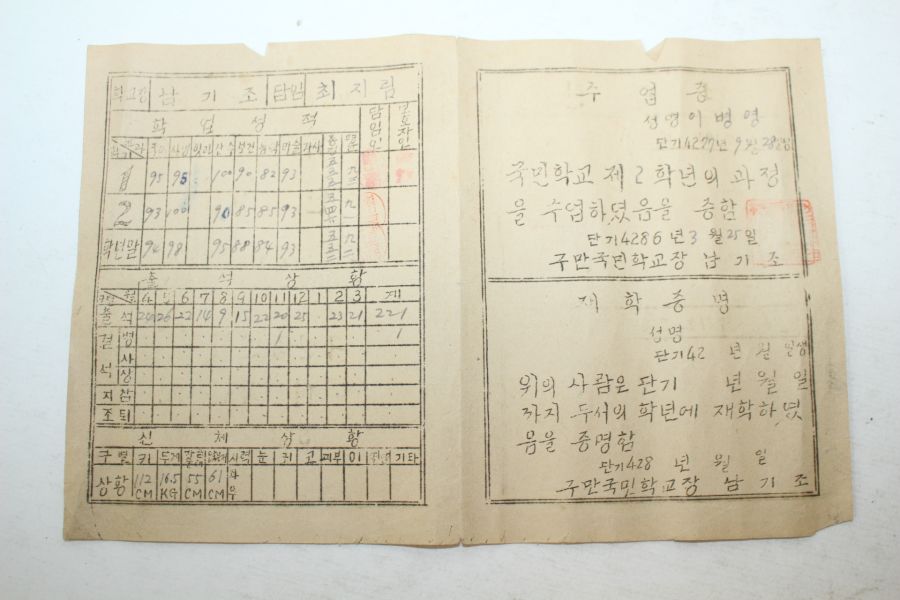 학교장 남기조 담임 최지림
학업성적 담임인 보호자인
1 95 95 100 90 82 93
2 93 100 90 85 85 93
학년말 94 98 95 88 84 93
출석상황
구분 월 4 5 6 7 8 9 10 11 12 1 2 3 계
출석 24 26 22 14 9 15 22 20 25 23 21 221
결석 병 1 1
사
상
지참
조퇴
신체상황
구별 키 무게 시력 눈 귀 코 피부 이 기타
상황 112CM 16.5KG 55CM 61CM 좌 우
수업증
성명 이병영
단기4277년 9월 28일생
국민학교 제 2 학년의 과정
을 수업하였음을 증함
단기4286년 3월 25일
구만국민학교장 남기조
재학증명
성명
단기42 년 월 일생
위의 사람은 단기 년 월 일
까지 두서의 학년에 재학하였
음을 증명함
단기428 년 월 일
구만국민학교장 남기조